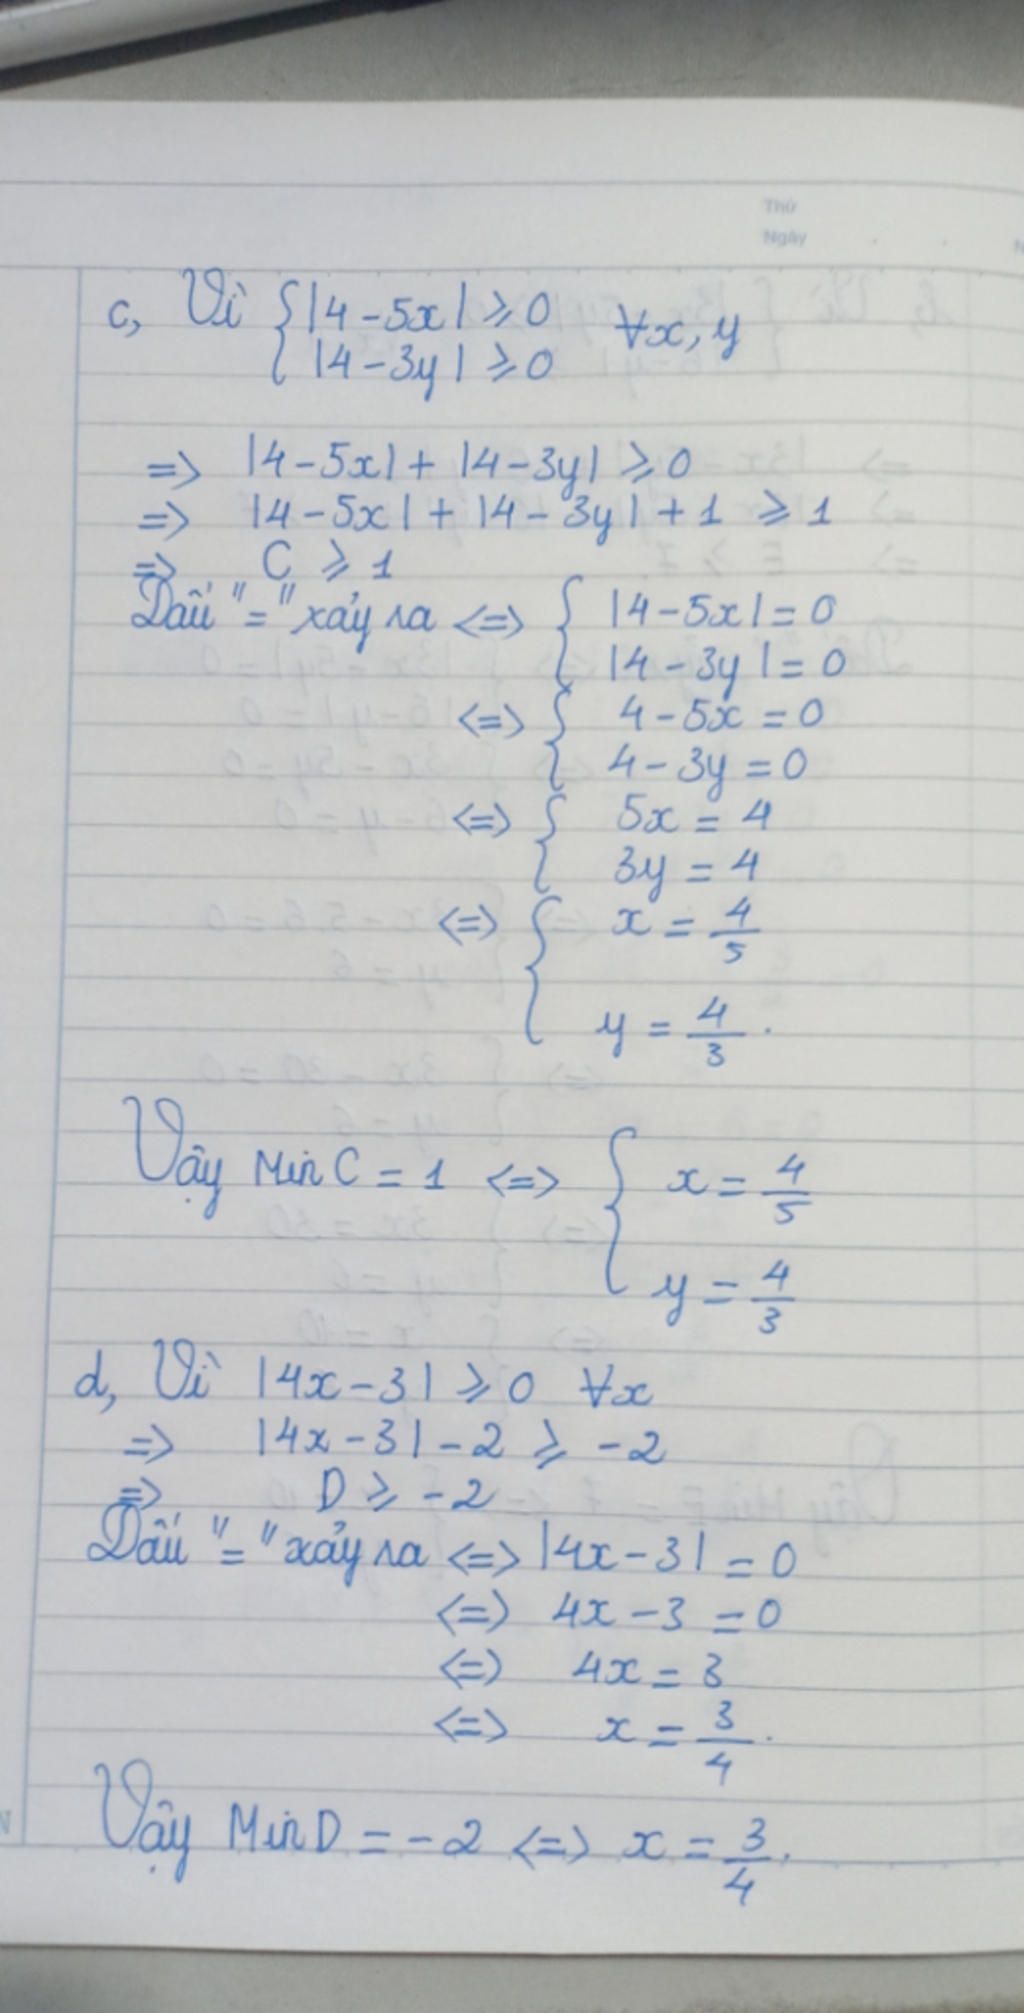 Thứ
Ngày
c, Vì { |4-5x| ⩾ 0 ∀x, y
|4-3y| ⩾ 0
=> |4-5x| + |4-3y| ⩾ 0
=> |4-5x| + |4-3y| + 1 ⩾ 1
=> C ⩾ 1
Dấu "=" xảy ra <=> { |4-5x| = 0
|4-3y| = 0
<=> { 4-5x = 0
4-3y = 0
<=> { 5x = 4
3y = 4
<=> { x = 4/5
y = 4/3.
Vậy Min C = 1 <=> { x = 4/5
y = 4/3
d, Vì |4x-3| ⩾ 0 ∀x
=> |4x-3| - 2 ⩾ -2
=> D ⩾ -2
Dấu "=" xảy ra <=> |4x-3| = 0
<=> 4x-3 = 0
<=> 4x = 3
<=> x = 3/4.
Vậy Min D = -2 <=> x = 3/4.